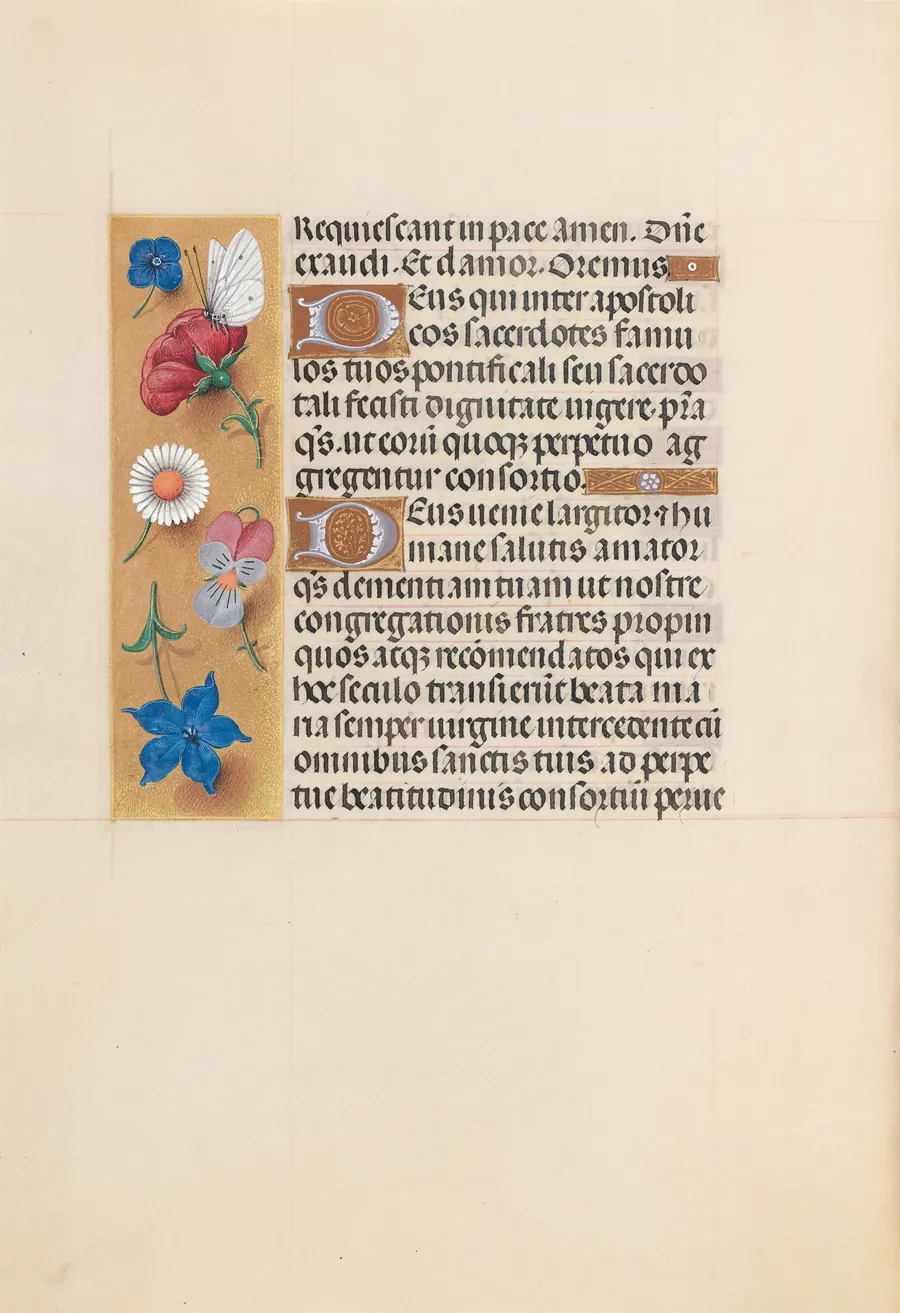 Requiescant in pace Amen. Dñe
exaudi. Et clamor. Oremus
Deus qui inter apostoli
cos sacerdotes famu
los tuos pontificali seu sacerdo
tali fecisti dignitate uigere. pr̄a
q̄s. ut eorū quoqꝫ perpetuo ag
gregentur consortio.
Deus uenie largitor ⁊ hu
mane salutis amator
q̄s clementiam tuam ut nostre
congregationis fratres propin
quos atqꝫ recōmendatos qui ex
hoc seculo transierūt beata ma
ria semper uirgine intercedente cū
omnibus sanctis tuis ad perpe
tue beatitudinis consortiū perue